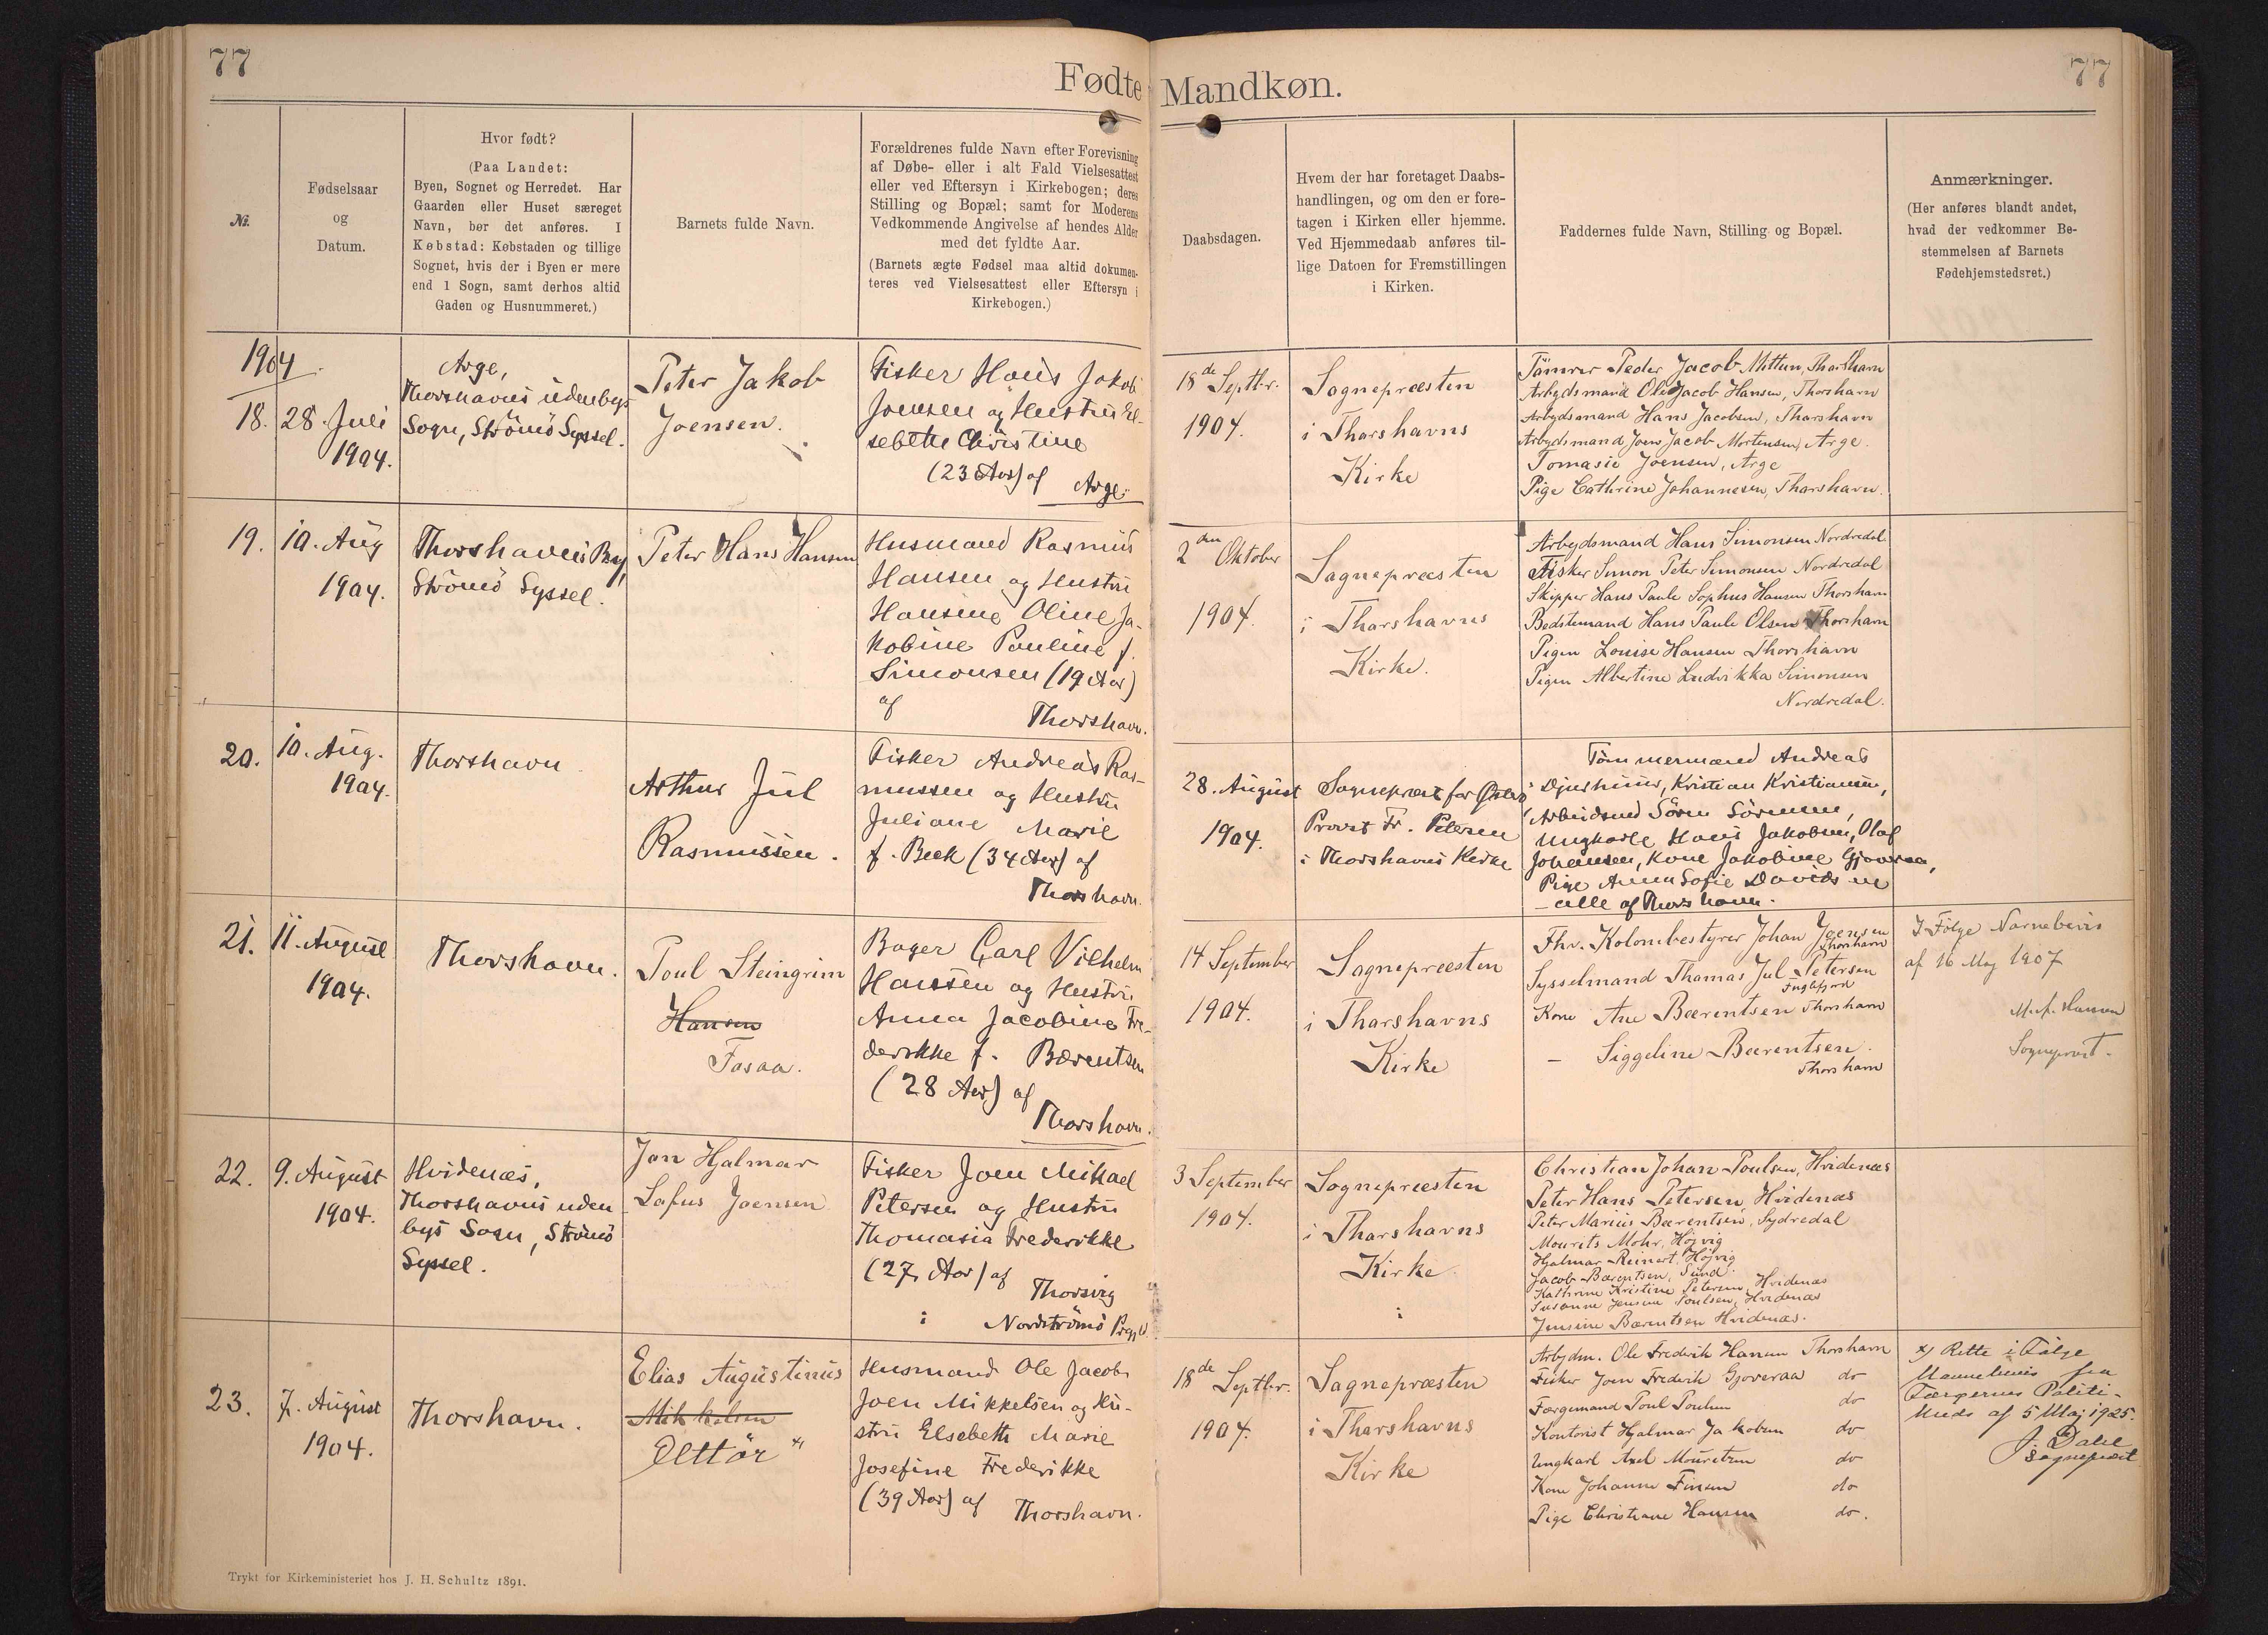 77
Fødte
Mandkøn.
77
Nr.
Fødselsaar
og
Datum.
Hvor født?
(Paa Landet:
Byen, Sognet og Herredet. Har
Gaarden eller Huset særeget
Navn, bør det anføres. I
Købstad: Købstaden og tillige
Sognet, hvis der i Byen er mere
end 1 Sogn, samt derhos altid
Gaden og Husnummeret.)
Barnets fulde Navn.
Forældrenes fulde Navn efter Forevisning
af Døbe- eller i alt Fald Vielsesattest
eller ved Eftersyn i Kirkebogen; deres
Stilling og Bopæl; samt for Moderens
Vedkommende Angivelse af hendes Alder
med det fyldte Aar.
(Barnets ægte Fødsel maa altid dokumen-
teres ved Vielsesattest eller Eftersyn i
Kirkebogen.)
Daabsdagen.
Hvem der har foretaget Daabs-
handlingen, og om den er fore-
tagen i Kirken eller hjemme.
Ved Hjemmedaab anføres til-
lige Datoen for Fremstillingen
i Kirken.
Faddernes fulde Navn, Stilling og Bopæl.
Anmærkninger.
(Her anføres blandt andet,
hvad der vedkommer Be-
stemmelsen af Barnets
Fødehjemstedsret.)
1904
18.
28. Juli
1904.
Arge,
Thorshavns udenbys
Sogn, Strömö Syssel.
Peter Jakob
Joensen.
Fisker Hans Jakob
Joensen og Hustru El-
sebette Christine
(23 Aar) af
Arge.
18de Septbr.
1904.
Sognepræsten
i Thorshavns
Kirke
Tömrer Peder Jacob Mittun, Thorshavn
Arbejdsmand Ole Jacob Hansen, Thorshavn
Arbejdsmand Hans Jacobsen, Thorshavn
Arbejdsmand Joen Jacob Mortensen, Arge.
Tomasie Joensen, Arge
Pige Cathrine Johannesen, Thorshavn.
19.
10. Aug
1904.
Thorshavns By,
Strömö Syssel.
Peter Hans Hansen
Husmand Rasmus
Hansen og Hustru
Hansine Oline Ja-
kobine Pouline f.
Simonsen (19 Aar)
af
Thorshavn.
2den Oktober
1904.
Sognepræsten
i Thorshavns
Kirke.
Arbejdsmand Hans Simonsen Nordredal
Fisker Simon Peter Simonsen Nordredal
Skipper Hans Paule Sophus Hansen Thorshavn
Bedstemand Hans Paule Olsen Thorshavn
Pigen Louise Hansen Thorshavn
Pigen Albertine Ludvikka Simonsen
Nordredal.
20.
10. Aug.
1904.
Thorshavn
Arthur Jul
Rasmussen.
Fisker Andreas Ras-
mussen og Hustru
Juliane Marie
f. Beck (34 Aar) af
Thorshavn.
28. August
1904.
Sognepræst for Österö
Provst Fr. Petersen
i Thorshavns Kirke
Tömmermand Andreas
Djurhuus, Kristian Kristiansen,
Arbeidsmd Sören Sörensen,
Ungkarle Hans Jakobsen, Olaf
Johannsen, Kone Jakobine Gjoveraa,
Pige Anna Sofie Davidsen
- alle af Thorshavn.
21.
11. August
1904.
Thorshavn.
Poul Steingrim
Hansen
Fosaa.
Bager Carl Vilhelm
Hansen og Hustru
Anna Jacobine Fre-
derikke f. Bærentsen
(28 Aar) af
Thorshavn.
14 September
1904.
Sognepræsten
i Thorshavns
Kirke
Fhv. Kolonibestyrer Johan Joensen
Thorshavn
Sysselmand Thomas Jul Petersen
Fuglefjord
Kone Ane Bærentsen Thorshavn
- Siggeline Bærentsen.
Thorshavn
I Følge Navnebevis
af 16 Maj 1907
Hansen
Sognepræst.
22.
9. August
1904.
Hvidenæs,
Thorshavns uden
bys Sogn, Strömö
Syssel.
Jon Hjalmar
Lofus Joensen
Fisker Joen Mikael
Petersen og Hustru
Thomasia Frederikke
(27 Aar) af
Thorsvig
i Nordströmö Prgjld.
3 September
1904.
Sognepræsten
i Thorshavns
Kirke.
Christian Johan Poulsen, Hvidenæs
Peter Hans Petersen, Hvidenæs
Peter Marius Bærentsen, Sydredal
Mourits Mohr, Höjvig
Hjalmar Reinert, Höjvig
Jacob Bærentsen, Sund.
Kathrine Kristine Petersen, Hvidenæs
Susanne Jensine Poulsen, Hvidenæs
Jensine Bærentsen Hvidenæs.
23.
7. August
1904.
Thorshavn.
Elias Augustinus
Mikkelsen
Elttör x)
Husmand Ole Jacob
Joen Mikkelsen og Hu-
stru Elsebeth Marie
Josefine Frederikke
(39 Aar) af
Thorshavn.
18de Septbr.
1904.
Sognepræsten
i Thorshavns
Kirke
Arbejdm. Ole Frederik Hansen Thorshavn
Fisker Joen Frederik Gjoveraa do
Færgemand Poul Poulsen do
Kontorist Hjalmar Jakobsen do
Ungkarl Axel Mouritsen do
Kone Johanne Finsen do
Pige Christiane Hansen do.
x) Rette i Følge
Navnebevis fra
Færøernes Politi-
af 5 Maj 1925.
J. Dahl
Sognepræst
Trykt for Kirkeministeriet hos J. H. Schultz 1891.